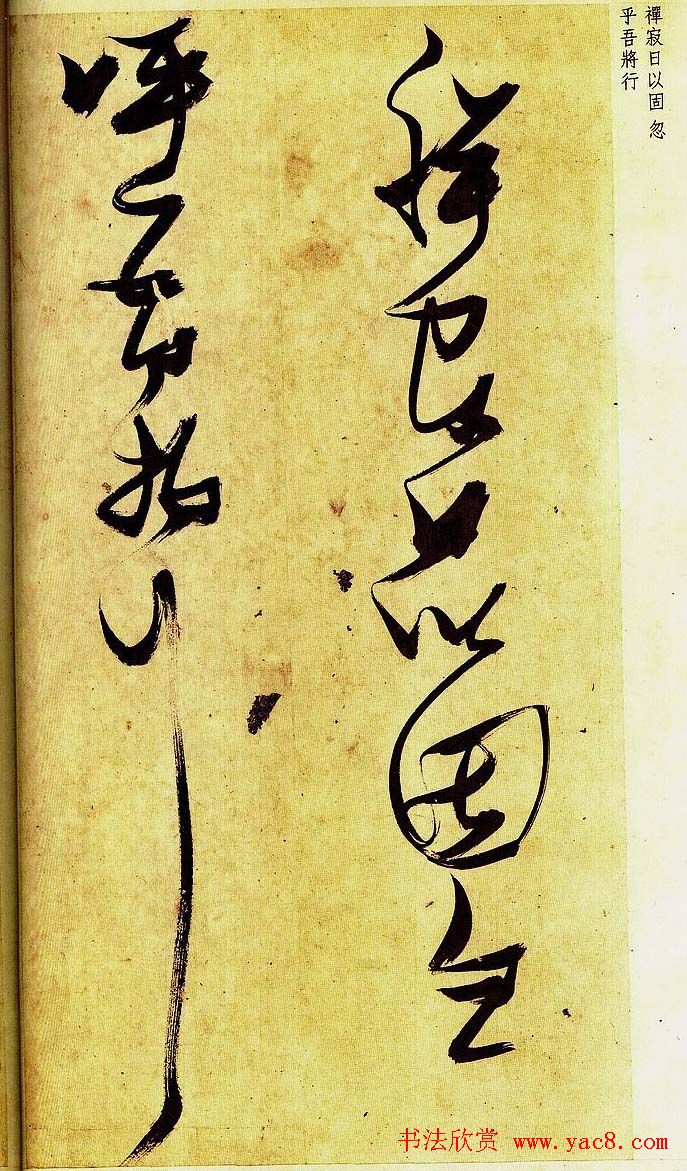 禪寂日以固 忽
乎吾將行
禪寂日以固忽
呼吾將行
书法欣赏 www.yac8.com